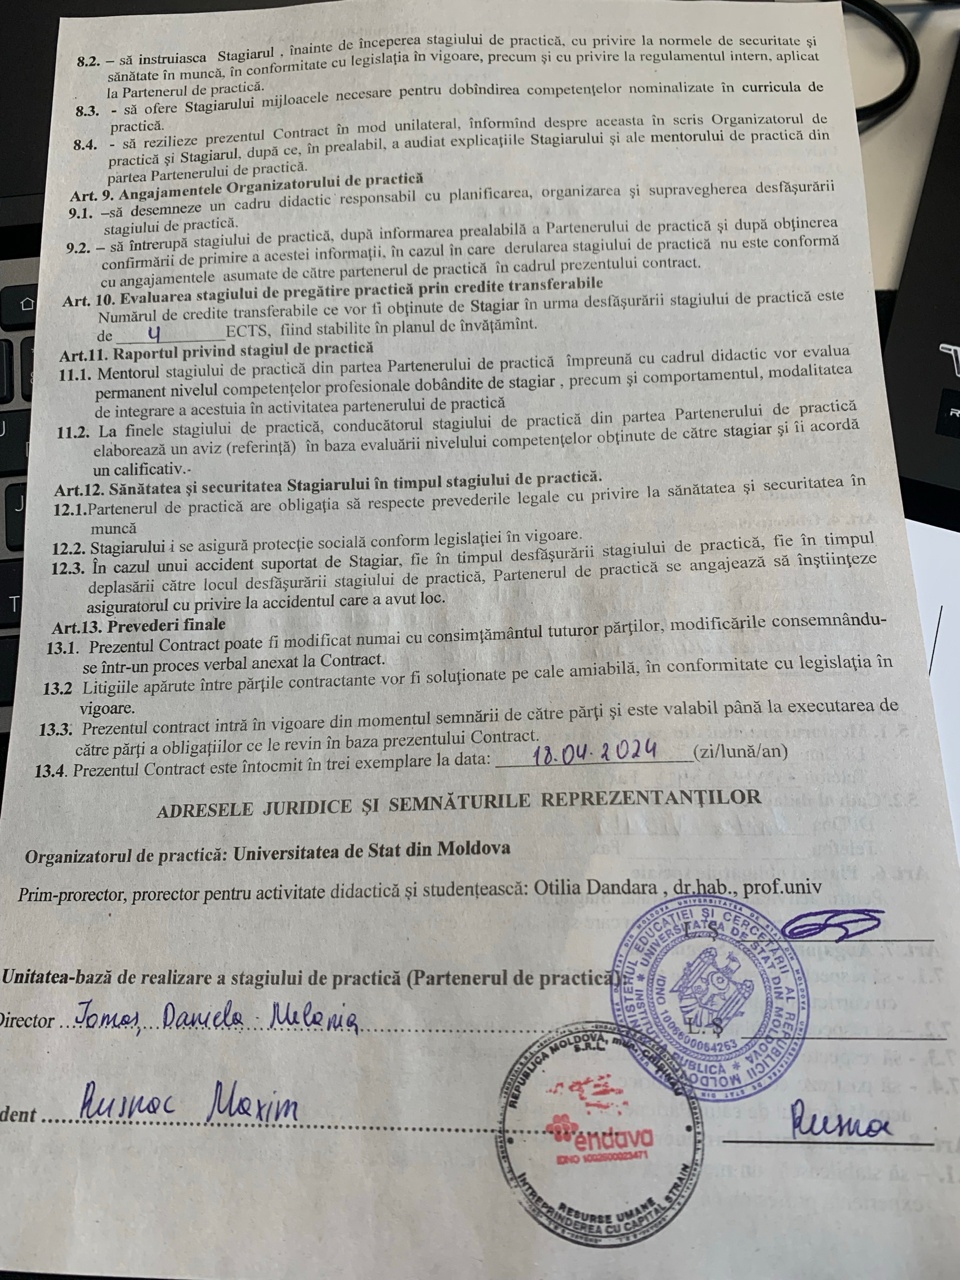 8.2. – să instruiasca Stagiarul , înainte de începerea stagiului de practică, cu privire la normele de securitate și
sănătate în muncă, în conformitate cu legislația în vigoare, precum și cu privire la regulamentul intern, aplicat
la Partenerul de practică.
8.3. - să ofere Stagiarului mijloacele necesare pentru dobîndirea competențelor nominalizate în curricula de
practică.
8.4. - să rezilieze prezentul Contract în mod unilateral, informînd despre aceasta în scris Organizatorul de
practică și Stagiarul, după ce, în prealabil, a audiat explicațiile Stagiarului și ale mentorului de practică din
partea Partenerului de practică.
Art. 9. Angajamentele Organizatorului de practică
9.1. –să desemneze un cadru didactic responsabil cu planificarea, organizarea și supravegherea desfășurării
stagiului de practică.
9.2. – să întrerupă stagiului de practică, după informarea prealabilă a Partenerului de practică și după obținerea
confirmării de primire a acestei informații, în cazul în care derularea stagiului de practică nu este conformă
cu angajamentele asumate de către partenerul de practică în cadrul prezentului contract.
Art. 10. Evaluarea stagiului de pregătire practică prin credite transferabile
Numărul de credite transferabile ce vor fi obținute de Stagiar în urma desfășurării stagiului de practică este
de 4 ECTS, fiind stabilite în planul de învățămînt.
Art.11. Raportul privind stagiul de practică
11.1. Mentorul stagiului de practică din partea Partenerului de practică împreună cu cadrul didactic vor evalua
permanent nivelul competențelor profesionale dobândite de stagiar , precum și comportamentul, modalitatea
de integrare a acestuia în activitatea partenerului de practică
11.2. La finele stagiului de practică, conducătorul stagiului de practică din partea Partenerului de practică
elaborează un aviz (referință) în baza evaluării nivelului competențelor obținute de către stagiar și îi acordă
un calificativ.-
Art.12. Sănătatea și securitatea Stagiarului în timpul stagiului de practică.
12.1.Partenerul de practică are obligația să respecte prevederile legale cu privire la sănătatea și securitatea în
muncă
12.2. Stagiarului i se asigură protecție socială conform legislației în vigoare.
12.3. În cazul unui accident suportat de Stagiar, fie în timpul desfășurării stagiului de practică, fie în timpul
deplasării către locul desfășurării stagiului de practică, Partenerul de practică se angajează să înștiințeze
asiguratorul cu privire la accidentul care a avut loc.
Art.13. Prevederi finale
13.1. Prezentul Contract poate fi modificat numai cu consimțământul tuturor părților, modificările consemnându-
se într-un proces verbal anexat la Contract.
13.2 Litigiile apărute între părțile contractante vor fi soluționate pe cale amiabilă, în conformitate cu legislația în
vigoare.
13.3. Prezentul contract intră în vigoare din momentul semnării de către părți și este valabil până la executarea de
către părți a obligațiilor ce le revin în baza prezentului Contract.
13.4. Prezentul Contract este întocmit în trei exemplare la data: 18.04.2024 (zi/lună/an)
ADRESELE JURIDICE ȘI SEMNĂTURILE REPREZENTANȚILOR
Organizatorul de practică: Universitatea de Stat din Moldova
Prim-prorector, prorector pentru activitate didactică și studențească: Otilia Dandara , dr.hab., prof.univ
L. Ș
Unitatea-bază de realizare a stagiului de practică (Partenerul de practică):
Director Tomaș Daniela-Melania
L. Ș
dent Rusnac Maxim
Rusna
REPUBLICA MOLDOVA, mun. CHIȘINĂU
S.R.L.
endava
IDNO 1002600023471
RESURSE UMANE
ÎNTREPRINDEREA CU CAPITAL STRĂIN
MINISTERUL EDUCAȚIEI ȘI CERCETĂRII AL REPUBLICII MOLDOVA
UNIVERSITATEA DE STAT DIN MOLDOVA
IDNO 1006600064263